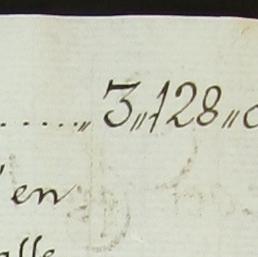 .....„ 3„128„
'en
alle